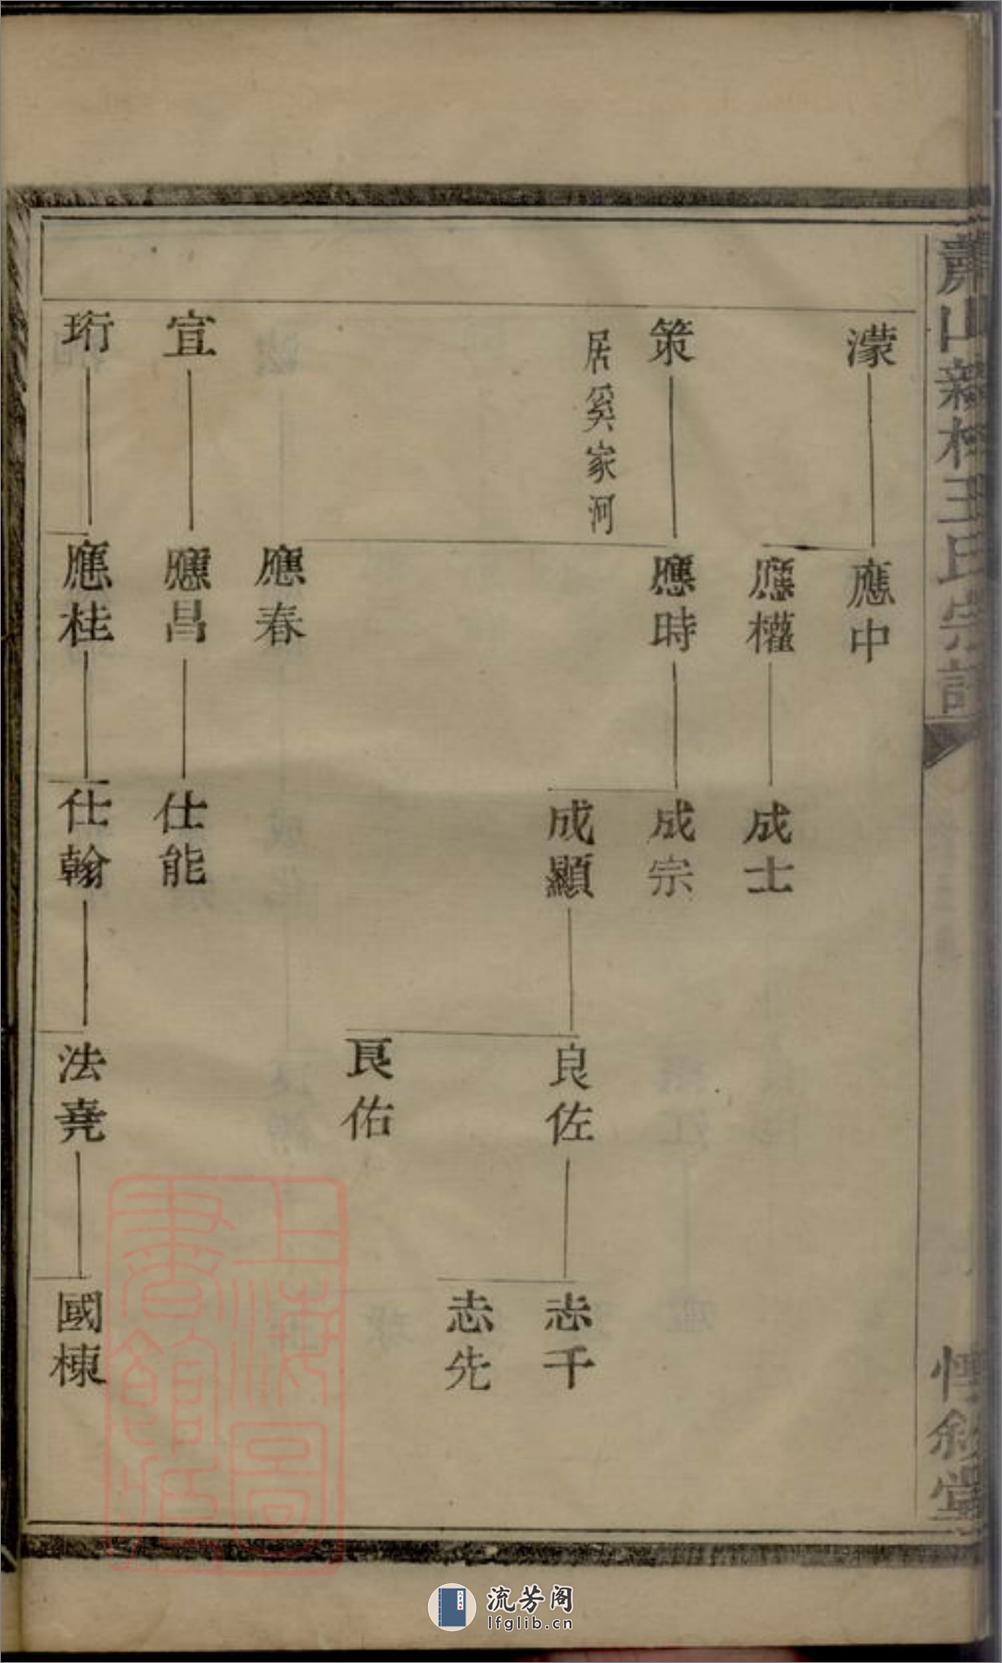 蕭山新村王氏宗譜
惇敘堂
濛
應中
應權
成士
策
居奚家河
應時
成宗
成顯
良佐
志千
志先
良佑
應春
宣
應昌
仕能
珩
應桂
仕翰
法堯
國棟
上海圖
書館藏
流芳阁
lfglib.cn